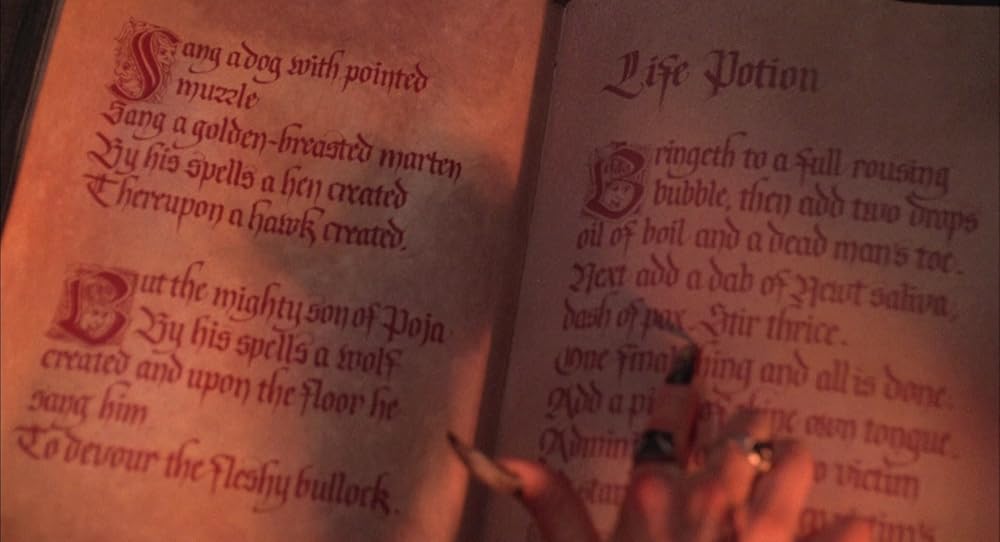 Sang a dog with pointed
muzzle
Sang a golden-breasted marten
By his spells a hen created
Thereupon a hawk created.
But the mighty son of Poja
By his spells a wolf
created and upon the floor he
sang him
To devour the fleshy bullock.
Life Potion
Bringeth to a full rousing
bubble, then add two drops
oil of boil and a dead man's toe.
Next add a dab of Newt saliva,
dash of pox. Stir thrice.
One final thing and all is done.
Add a thine own tongue.
victim